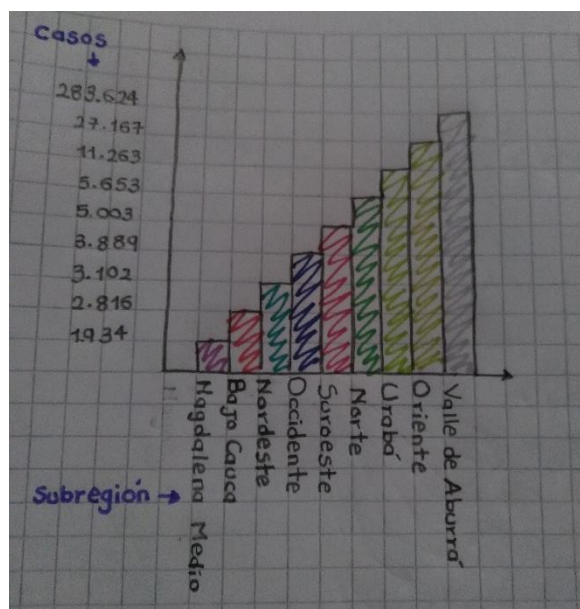 Casos
283.624
27.167
11.263
5.653
5.003
3.889
3.102
2.816
1.934
Magdalena Medio
Bajo Cauca
Nordeste
Occidente
Suroeste
Norte
Urabá
Oriente
Valle de Aburrá
Subregión